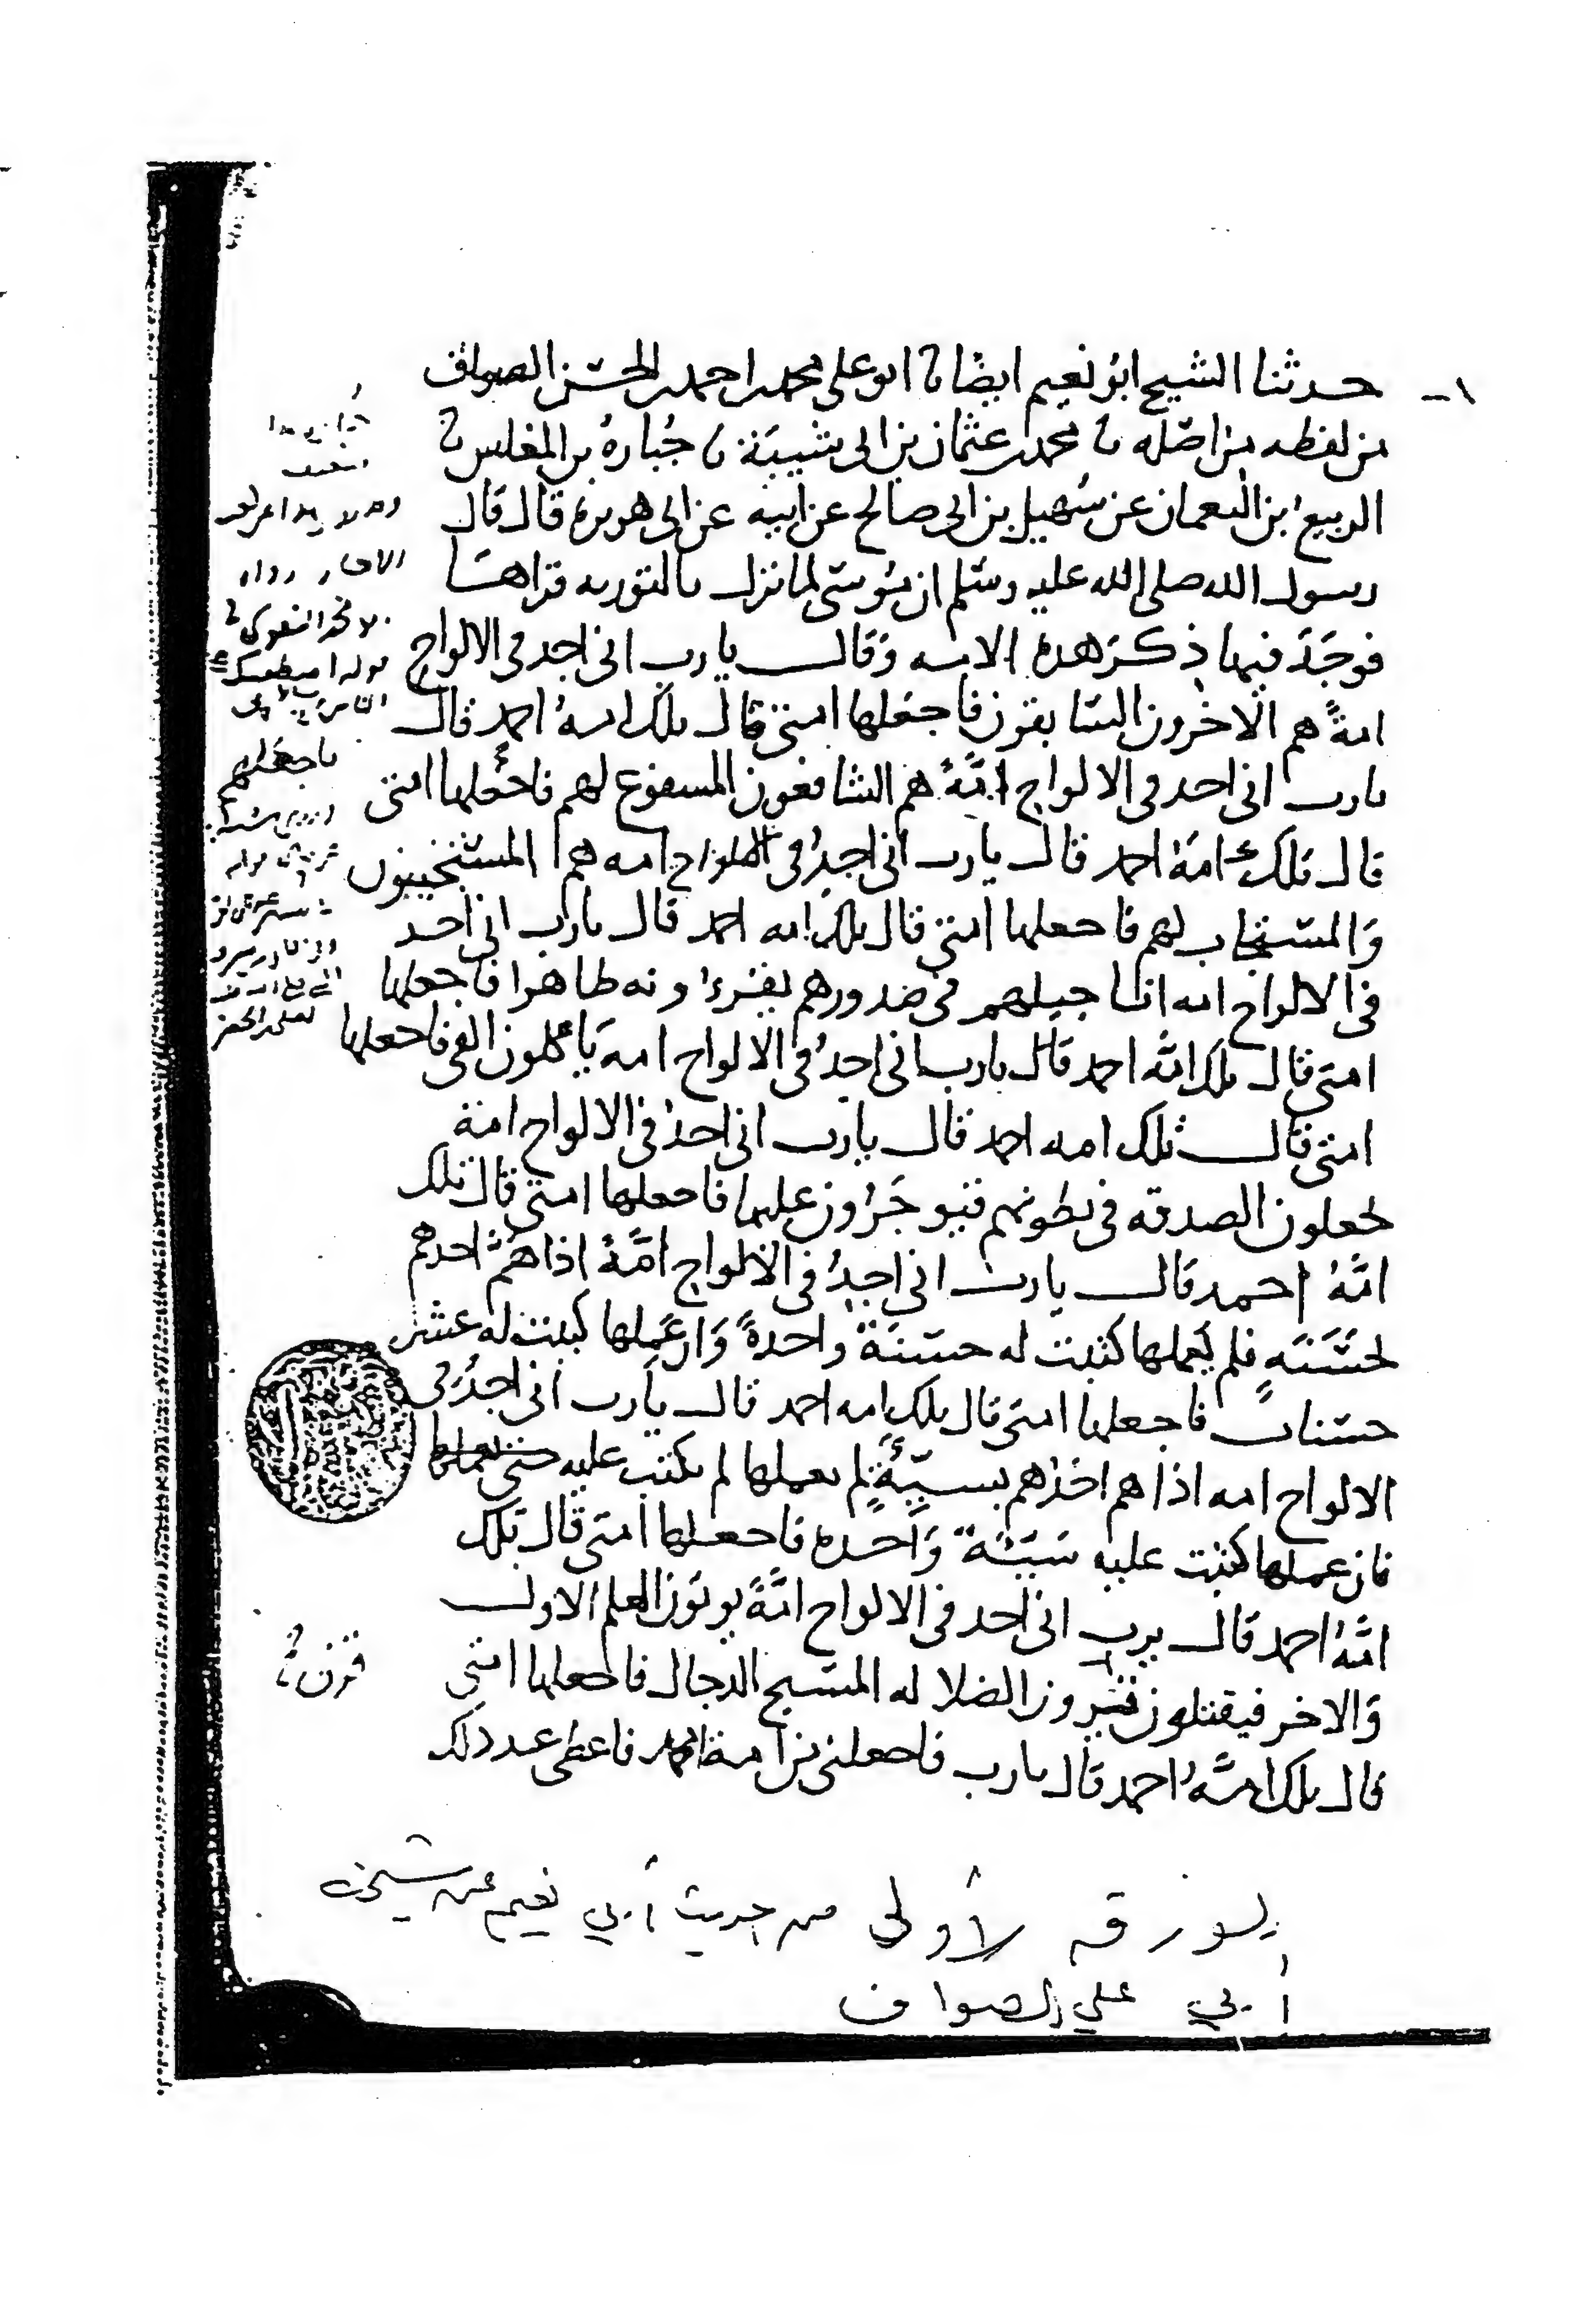 ١- حدثنا الشيخ ابو نعيم ايضا نا ابو على محمد بن احمد بن الحسن الصواف
من لفظه من اصله نا محمد بن عثمان بن ابى شيبة نا جُبارة بن المغلس نا
الربيع بن النعمان عن سُهيل بن ابى صالح عن ابيه عن ابى هريرة قال قال
رسول الله صلى الله عليه وسلم ان موسى لما نزلت التوريه قراها
فوجَدَ فيها ذكر هذه الامه وَقال يا رب انى اجد فى الالواح
امةً هم الاخرون السابقون فاجعلها امتى قال تلك امة احمد قال
يارب انى اجد فى الالواح امَّةً هم الشافعون المشفوع لهم فاجعلها امتى
قال تلك امة احمد قال يارب انى اجدُ فى الالواح امه هم المستجيبون
وَالمستجاب لهم فاجعلها امتى قال تلك امه احمد قال يارب انى اجد
فى الالواح امه اناجيلهم فى صدورهم يقرءونه ظاهرا فاجعلها
امتى قال تلك امَّة احمد قال يارب انى اجدُ فى الالواح امه يَاكلون الفى فاجعلها
امتى قال تلك امه احمد قال يارب انى اجدُ فى الالواح امة
يجعلون الصدقه فى بطونهم فيو جَرُون عليها فاجعلها امتى قال تلك
امَّةُ احمد قال يارب انى اجدُ فى الالواح امَّةً اذا هَمَّ احدهم
بحَسَنَةٍ فلم يَعملها كتبت له حسنةً واحدةً وَان عَملها كتبت له عشر
حسنات فاجعلها امتى قال تلك امه احمد قال يارب انى اجدُ فى
الالواح امه اذا هم احدُهم بسيّئَةٍ لم يعملها لم يكتب عليه حتى يعملها
فان عملها كتبت عليه سَيّئَة وَاحده فاجعلها امتى قال تلك
امَّةُ احمد قال يرب انى اجد فى الالواح امَّةً يوتَون العلم الاول
وَالاخر فيقتلون قرون الضلاله المسيح الدجال فاجعلها امتى
قال تلك امَّةُ احمد قال يارب فاجعلنى من امة احمد فاعطى عند ذلك
فاجعلهم
قرن
الورقة الأولى من حديث أبي نعيم عن شيخه
أبي علي الصواف